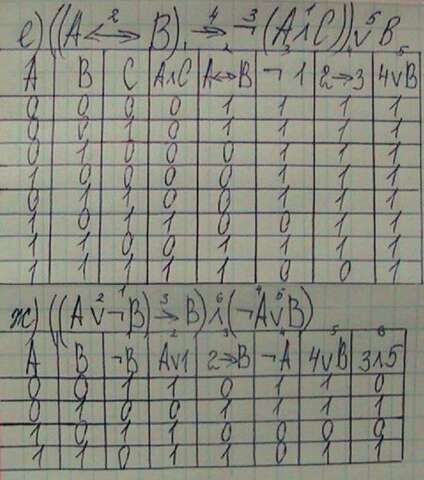 е) ((A ⟷² B) →⁴ ¬³ (A ∧¹ C)) ∨⁵ B
A B C A∧C A↔B ¬1 2→3 4∨B
0 0 0 0 1 1 1 1
0 0 1 0 1 1 1 1
0 1 0 0 0 1 1 1
1 0 0 0 0 1 1 1
0 1 1 0 0 1 1 1
1 0 1 1 0 0 1 1
1 1 0 0 1 1 1 1
1 1 1 1 1 0 0 1
ж) ((A ∨² ¬¹ B) →³ B) ∧⁶ (¬⁴ A ∨⁵ B)
A B ¬B A∨1 2→B ¬A 4∨B 3∧5
0 0 1 1 0 1 1 0
0 1 0 0 1 1 1 1
1 0 1 1 0 0 0 0
1 1 0 1 1 0 1 1